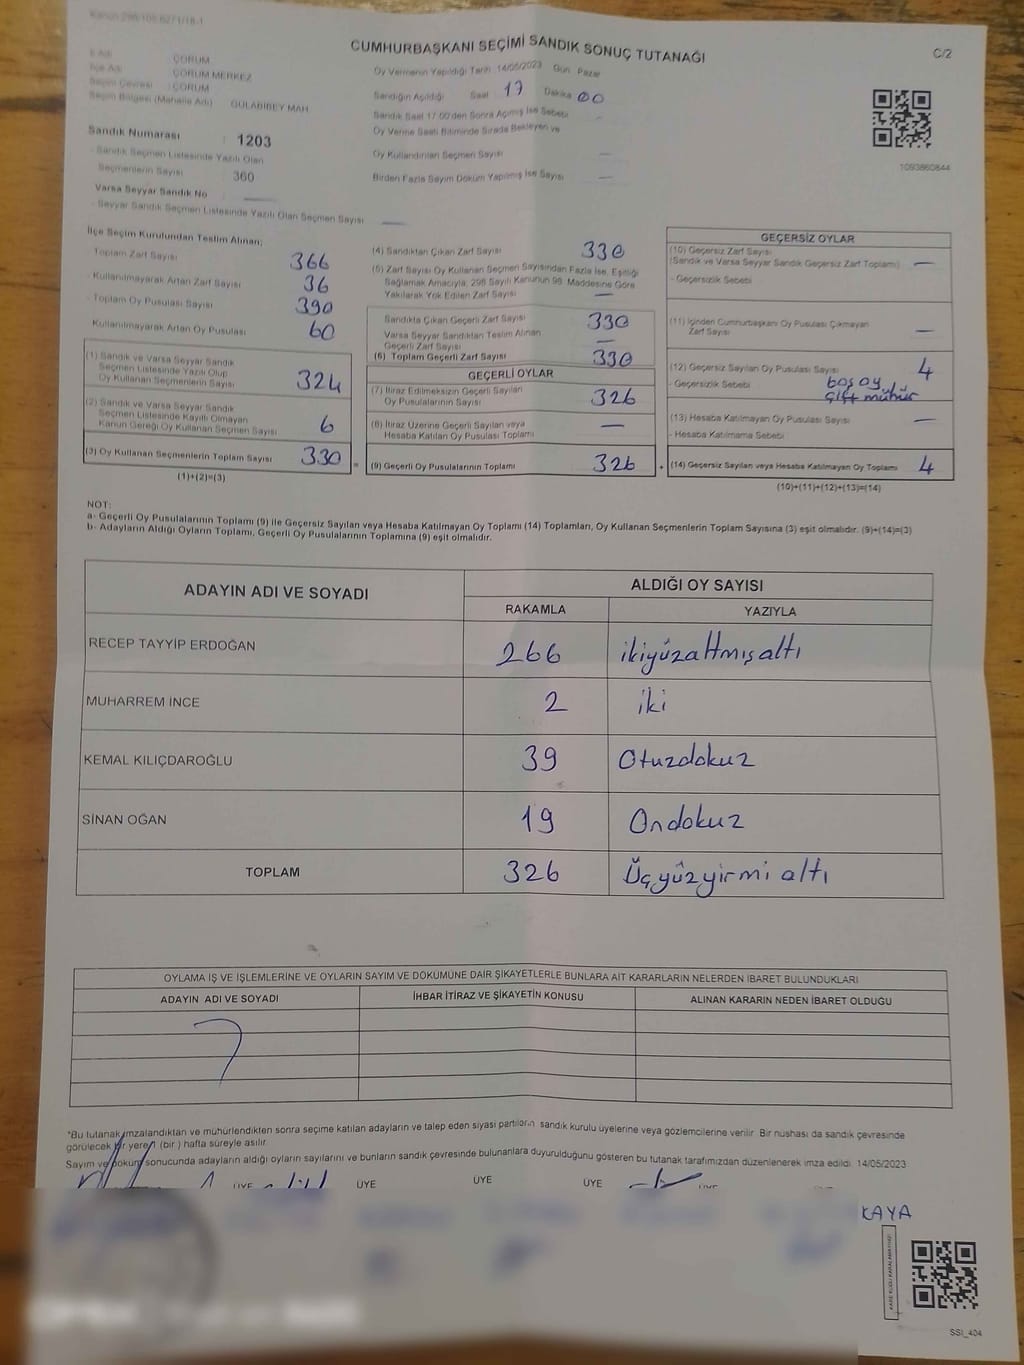 Kanun 298/105 6271/18-1
CUMHURBAŞKANI SEÇİMİ SANDIK SONUÇ TUTANAĞI
C/2
İl Adı : ÇORUM
İlçe Adı : ÇORUM MERKEZ
Seçim Çevresi : ÇORUM
Seçim Bölgesi (Mahalle Adı) GÜLABİBEY MAH
Sandık Numarası : 1203
- Sandık Seçmen Listesinde Yazılı Olan
Seçmenlerin Sayısı 360
Varsa Seyyar Sandık No
- Seyyar Sandık Seçmen Listesinde Yazılı Olan Seçmen Sayısı
Oy Vermenin Yapıldığı Tarih 14/05/2023 Gün Pazar
Sandığın Açıldığı Saat 17 Dakika 00
Sandık Saat 17.00'den Sonra Açılmış İse Sebebi
Oy Verme Saati Bitiminde Sırada Bekleyen ve
Oy Kullandırılan Seçmen Sayısı
Birden Fazla Sayım Döküm Yapılmış İse Sayısı
1093860844
İlçe Seçim Kurulundan Teslim Alınan;
Toplam Zarf Sayısı 366
- Kullanılmayarak Artan Zarf Sayısı 36
- Toplam Oy Pusulası Sayısı 390
Kullanılmayarak Artan Oy Pusulası 60
(1) Sandık ve Varsa Seyyar Sandık
Seçmen Listesinde Yazılı Olup
Oy Kullanan Seçmenlerin Sayısı 324
(2) Sandık ve Varsa Seyyar Sandık
Seçmen Listesinde Kayıtlı Olmayan
Kanun Gereği Oy Kullanan Seçmen Sayısı 6
(3) Oy Kullanan Seçmenlerin Toplam Sayısı 330
(1)+(2)=(3)
(4) Sandıktan Çıkan Zarf Sayısı 330
(5) Zarf Sayısı Oy Kullanan Seçmen Sayısından Fazla İse, Eşitliği
Sağlamak Amacıyla; 298 Sayılı Kanunun 98. Maddesine Göre
Yakılarak Yok Edilen Zarf Sayısı —
Sandıkta Çıkan Geçerli Zarf Sayısı 330
Varsa Seyyar Sandıktan Teslim Alınan
Geçerli Zarf Sayısı —
(6) Toplam Geçerli Zarf Sayısı 330
GEÇERLİ OYLAR
(7) İtiraz Edilmeksizin Geçerli Sayılan
Oy Pusulalarının Sayısı 326
(8) İtiraz Üzerine Geçerli Sayılan veya
Hesaba Katılan Oy Pusulası Toplamı —
= (9) Geçerli Oy Pusulalarının Toplamı 326
GEÇERSİZ OYLAR
(10) Geçersiz Zarf Sayısı
(Sandık ve Varsa Seyyar Sandık Geçersiz Zarf Toplamı) —
- Geçersizlik Sebebi
(11) İçinden Cumhurbaşkanı Oy Pusulası Çıkmayan
Zarf Sayısı —
(12) Geçersiz Sayılan Oy Pusulası Sayısı 4
- Geçersizlik Sebebi boş oy,
çift mühür
(13) Hesaba Katılmayan Oy Pusulası Sayısı —
- Hesaba Katılmama Sebebi
+ (14) Geçersiz Sayılan veya Hesaba Katılmayan Oy Toplamı 4
(10)+(11)+(12)+(13)=(14)
NOT:
a- Geçerli Oy Pusulalarının Toplamı (9) ile Geçersiz Sayılan veya Hesaba Katılmayan Oy Toplamı (14) Toplamları, Oy Kullanan Seçmenlerin Toplam Sayısına (3) eşit olmalıdır. (9)+(14)=(3)
b- Adayların Aldığı Oyların Toplamı, Geçerli Oy Pusulalarının Toplamına (9) eşit olmalıdır.
ADAYIN ADI VE SOYADI
ALDIĞI OY SAYISI
RAKAMLA YAZIYLA
RECEP TAYYİP ERDOĞAN 266 ikiyüzaltmışaltı
MUHARREM İNCE 2 iki
KEMAL KILIÇDAROĞLU 39 Otuzdokuz
SİNAN OĞAN 19 Ondokuz
TOPLAM 326 Üçyüzyirmi altı
OYLAMA İŞ VE İŞLEMLERİNE VE OYLARIN SAYIM VE DÖKÜMÜNE DAİR ŞİKAYETLERLE BUNLARA AİT KARARLARIN NELERDEN İBARET BULUNDUKLARI
ADAYIN ADI VE SOYADI İHBAR İTİRAZ VE ŞİKAYETİN KONUSU ALINAN KARARIN NEDEN İBARET OLDUĞU
*Bu tutanak imzalandıktan ve mühürlendikten sonra seçime katılan adayların ve talep eden siyasi partilerin sandık kurulu üyelerine veya gözlemcilerine verilir. Bir nüshası da sandık çevresinde
görülecek bir yere 1 (bir) hafta süreyle asılır.
Sayım ve döküm sonucunda adayların aldığı oyların sayılarını ve bunların sandık çevresinde bulunanlara duyurulduğunu gösteren bu tutanak tarafımızdan düzenlenerek imza edildi. 14/05/2023
ÜYE ÜYE ÜYE ÜYE ÜYE
KAYA
SSI_404